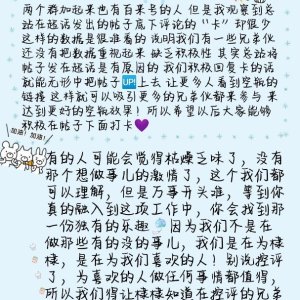 两个群加起来也有百来号的人 但是我观察到总
站在超话发出的帖子底下评论的“卡”却很少
这样的数据是很难看的 说明我们有一些兄弟伙
还没有把数据重视起来 缺乏积极性 其实总站将
帖子发在超话是有原因的 我们积极回复卡的话
就能无形中把帖子UP!上去 让更多人看到空瓶的
链接 这样就可以吸引更多的兄弟伙都来参与 来
达到更好的空瓶效果!所以希望以后大家能够
积极在帖子下面打卡💜
加油! 加油!
有的人可能会觉得枯燥乏味了，没有
那个想做事儿的激情了，这个我们都
可以理解，但是万事开头难，等到你
真的融入到这项工作中，你会找到那
一份独有的乐趣 因为我们不是在
做那些有的没的事儿，我们是在为样
样，是在为我们喜欢的人！别说控评
了，为喜欢的人做任何事情都值得，
所以我们得让样样知道关控评的兄